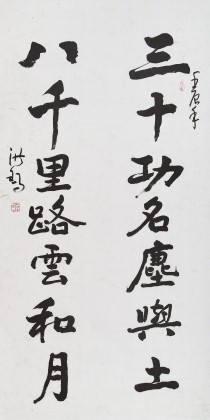 壬辰年
三十功名塵與土
八千里路雲和月